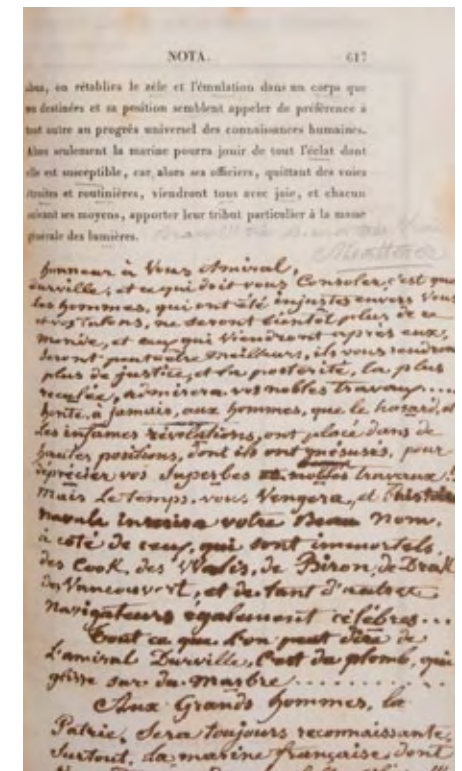 NOTA. 617
abus, on rétablira le zèle et l'émulation dans un corps que
ses destinées et sa position semblent appeler de préférence à
tout autre au progrès universel des connaissances humaines.
Alors seulement la marine pourra jouir de tout l'éclat dont
elle est susceptible, car alors ses officiers, quittant des voies
étroites et routinières, viendront tous avec joie, et chacun
suivant ses moyens, apporter leur tribut particulier à la masse
générale des lumières.
honneur à Vous Amiral,
durville, et ce qui doit vous Consoler, c'est que
les hommes, qui ont été injustes envers Vous
et vos talens, ne seront bientôt plus de ce
monde, et ceux qui Viendront après eux,
seront peut-être meilleurs, ils vous rendront
plus de justice, et la postérité, la plus
reculée, admirera vos nobles travaux....
honte, à jamais, aux hommes, que le hazard, et
les infames révolutions, ont placé dans de
hautes positions, dont ils ont mésusés, pour
déprécier vos Superbes et nobles travaux!
Mais Le temps, vous Vengera, et l'histoire
navale inscrira votre Beau Nom,
à côté de ceux, qui sont immortels,
des Cook, des Walis, de Biron, de Drak
des Vancouvert, et de tant d'autres
Navigateurs également célèbres...
Tout ce que l'on peut dire de
L'amiral Durville, C'est du plomb, qui
glisse sur du marbre..........
Aux Grands hommes, la
Patrie, Sera toujours reconnaissante,
Surtout, la marine française, dont